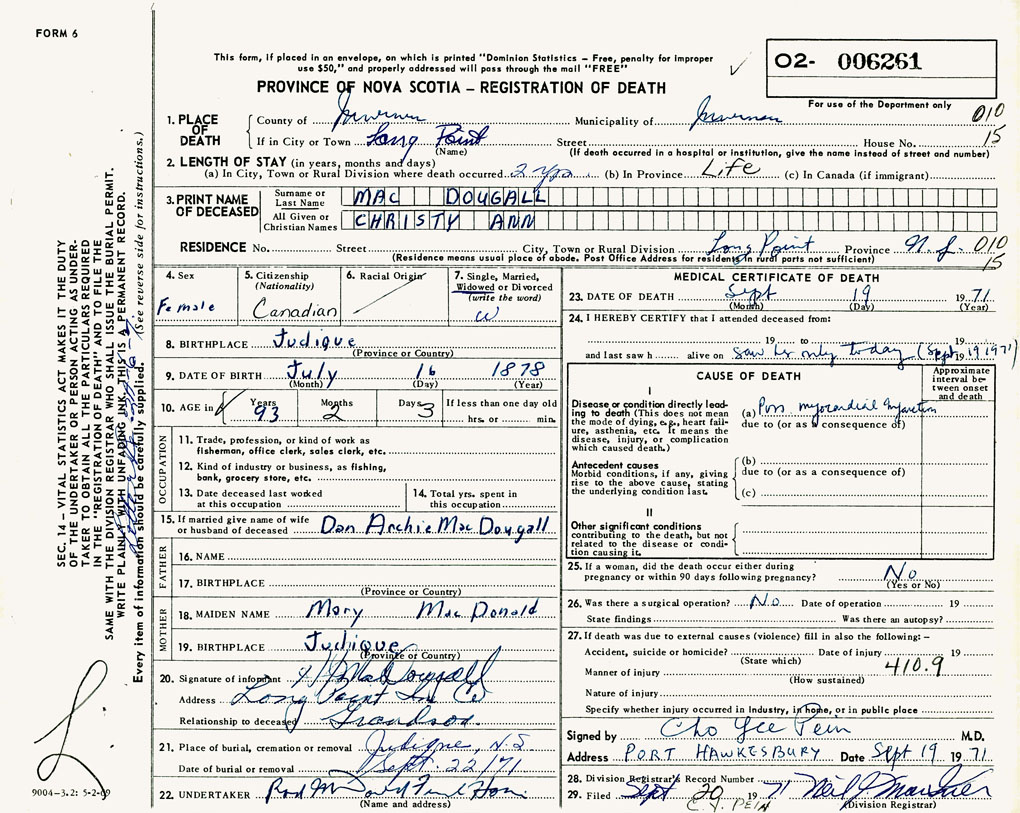 FORM 6
This form, if placed in an envelope, on which is printed "Dominion Statistics – Free, penalty for improper
use $50," and properly addressed will pass through the mail "FREE"
O2- 006261
For use of the Department only
PROVINCE OF NOVA SCOTIA – REGISTRATION OF DEATH
010
15
1. PLACE OF DEATH
County of Inverness Municipality of Inverness
If in City or Town Long Point Street House No.
(Name) (If death occurred in a hospital or institution, give the name instead of street and number)
2. LENGTH OF STAY (in years, months and days)
(a) In City, Town or Rural Division where death occurred 2 yrs (b) In Province Life (c) In Canada (if immigrant)
3. PRINT NAME OF DECEASED
Surname or Last Name MAC DOUGALL
All Given or Christian Names CHRISTY ANN
RESIDENCE No. Street City, Town or Rural Division Long Point Province N.S. 010
(Residence means usual place of abode. Post Office Address for residents in rural parts not sufficient) 15
4. Sex
Female
5. Citizenship
(Nationality)
Canadian
6. Racial Origin
7. Single, Married,
Widowed or Divorced
(write the word)
W
8. BIRTHPLACE Judique
(Province or Country)
9. DATE OF BIRTH July 16 1878
(Month) (Day) (Year)
10. AGE in Years Months Days If less than one day old
93 2 3 hrs. or min.
OCCUPATION
11. Trade, profession, or kind of work as
fisherman, office clerk, sales clerk, etc.
12. Kind of industry or business, as fishing,
bank, grocery store, etc.
13. Date deceased last worked
at this occupation
14. Total yrs. spent in
this occupation
15. If married give name of wife
or husband of deceased Dan Archie MacDougall
FATHER
16. NAME
17. BIRTHPLACE
(Province or Country)
MOTHER
18. MAIDEN NAME Mary MacDonald
19. BIRTHPLACE Judique
(Province or Country)
20. Signature of informant MacDougall
Address Long Point Inv Co
Relationship to deceased Grandson.
21. Place of burial, cremation or removal Judique, N.S
Date of burial or removal Sept. 22/71
22. UNDERTAKER
(Name and address)
MEDICAL CERTIFICATE OF DEATH
23. DATE OF DEATH Sept 19 1971
(Month) (Day) (Year)
24. I HEREBY CERTIFY that I attended deceased from:
19 to 19
and last saw h alive on saw her only today (Sept 19 1971)
CAUSE OF DEATH
Approximate
interval be-
tween onset
and death
I
Disease or condition directly lead-
ing to death (This does not mean
the mode of dying, e.g., heart fail-
ure, asthenia, etc. It means the
disease, injury, or complication
which caused death.)
(a) Poss myocardial infarction
due to (or as a consequence of)
Antecedent causes
Morbid conditions, if any, giving
rise to the above cause, stating
the underlying condition last.
(b)
due to (or as a consequence of)
(c)
II
Other significant conditions
contributing to the death, but not
related to the disease or condi-
tion causing it.
25. If a woman, did the death occur either during
pregnancy or within 90 days following pregnancy? No
(Yes or No)
26. Was there a surgical operation? No Date of operation 19
State findings Was there an autopsy?
27. If death was due to external causes (violence) fill in also the following: –
Accident, suicide or homicide? Date of injury 19
(State which)
410.9
Manner of injury
(How sustained)
Nature of injury
Specify whether injury occurred in Industry, in home, or in public place
Signed by Cho Yee Pein M.D.
Address PORT HAWKESBURY Date Sept 19 1971
28. Division Registrar's Record Number
29. Filed Sept 20 1971
C.Y. PEIN (Division Registrar)
SEC. 14 – VITAL STATISTICS ACT MAKES IT THE DUTY
OF THE UNDERTAKER OR PERSON ACTING AS UNDER-
TAKER TO OBTAIN ALL THE PARTICULARS REQUIRED
IN THE "REGISTRATION OF DEATH" AND TO FILE THE
SAME WITH THE DIVISION REGISTRAR WHO SHALL ISSUE THE BURIAL PERMIT.
WRITE PLAINLY WITH UNFADING INK. THIS IS A PERMANENT RECORD.
Every item of information should be carefully supplied. (See reverse side for instructions.)
9004-3.2: 5-2-69